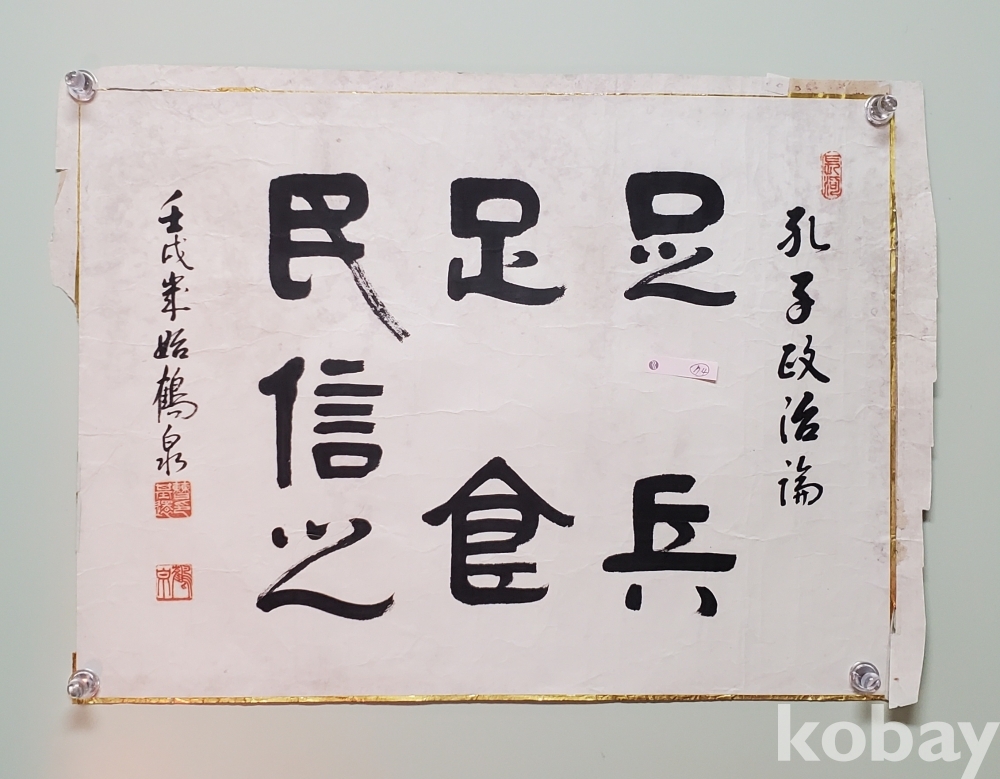 孔子政治論
足兵
足食
民信之
壬戌歲始鶴泉
kobay